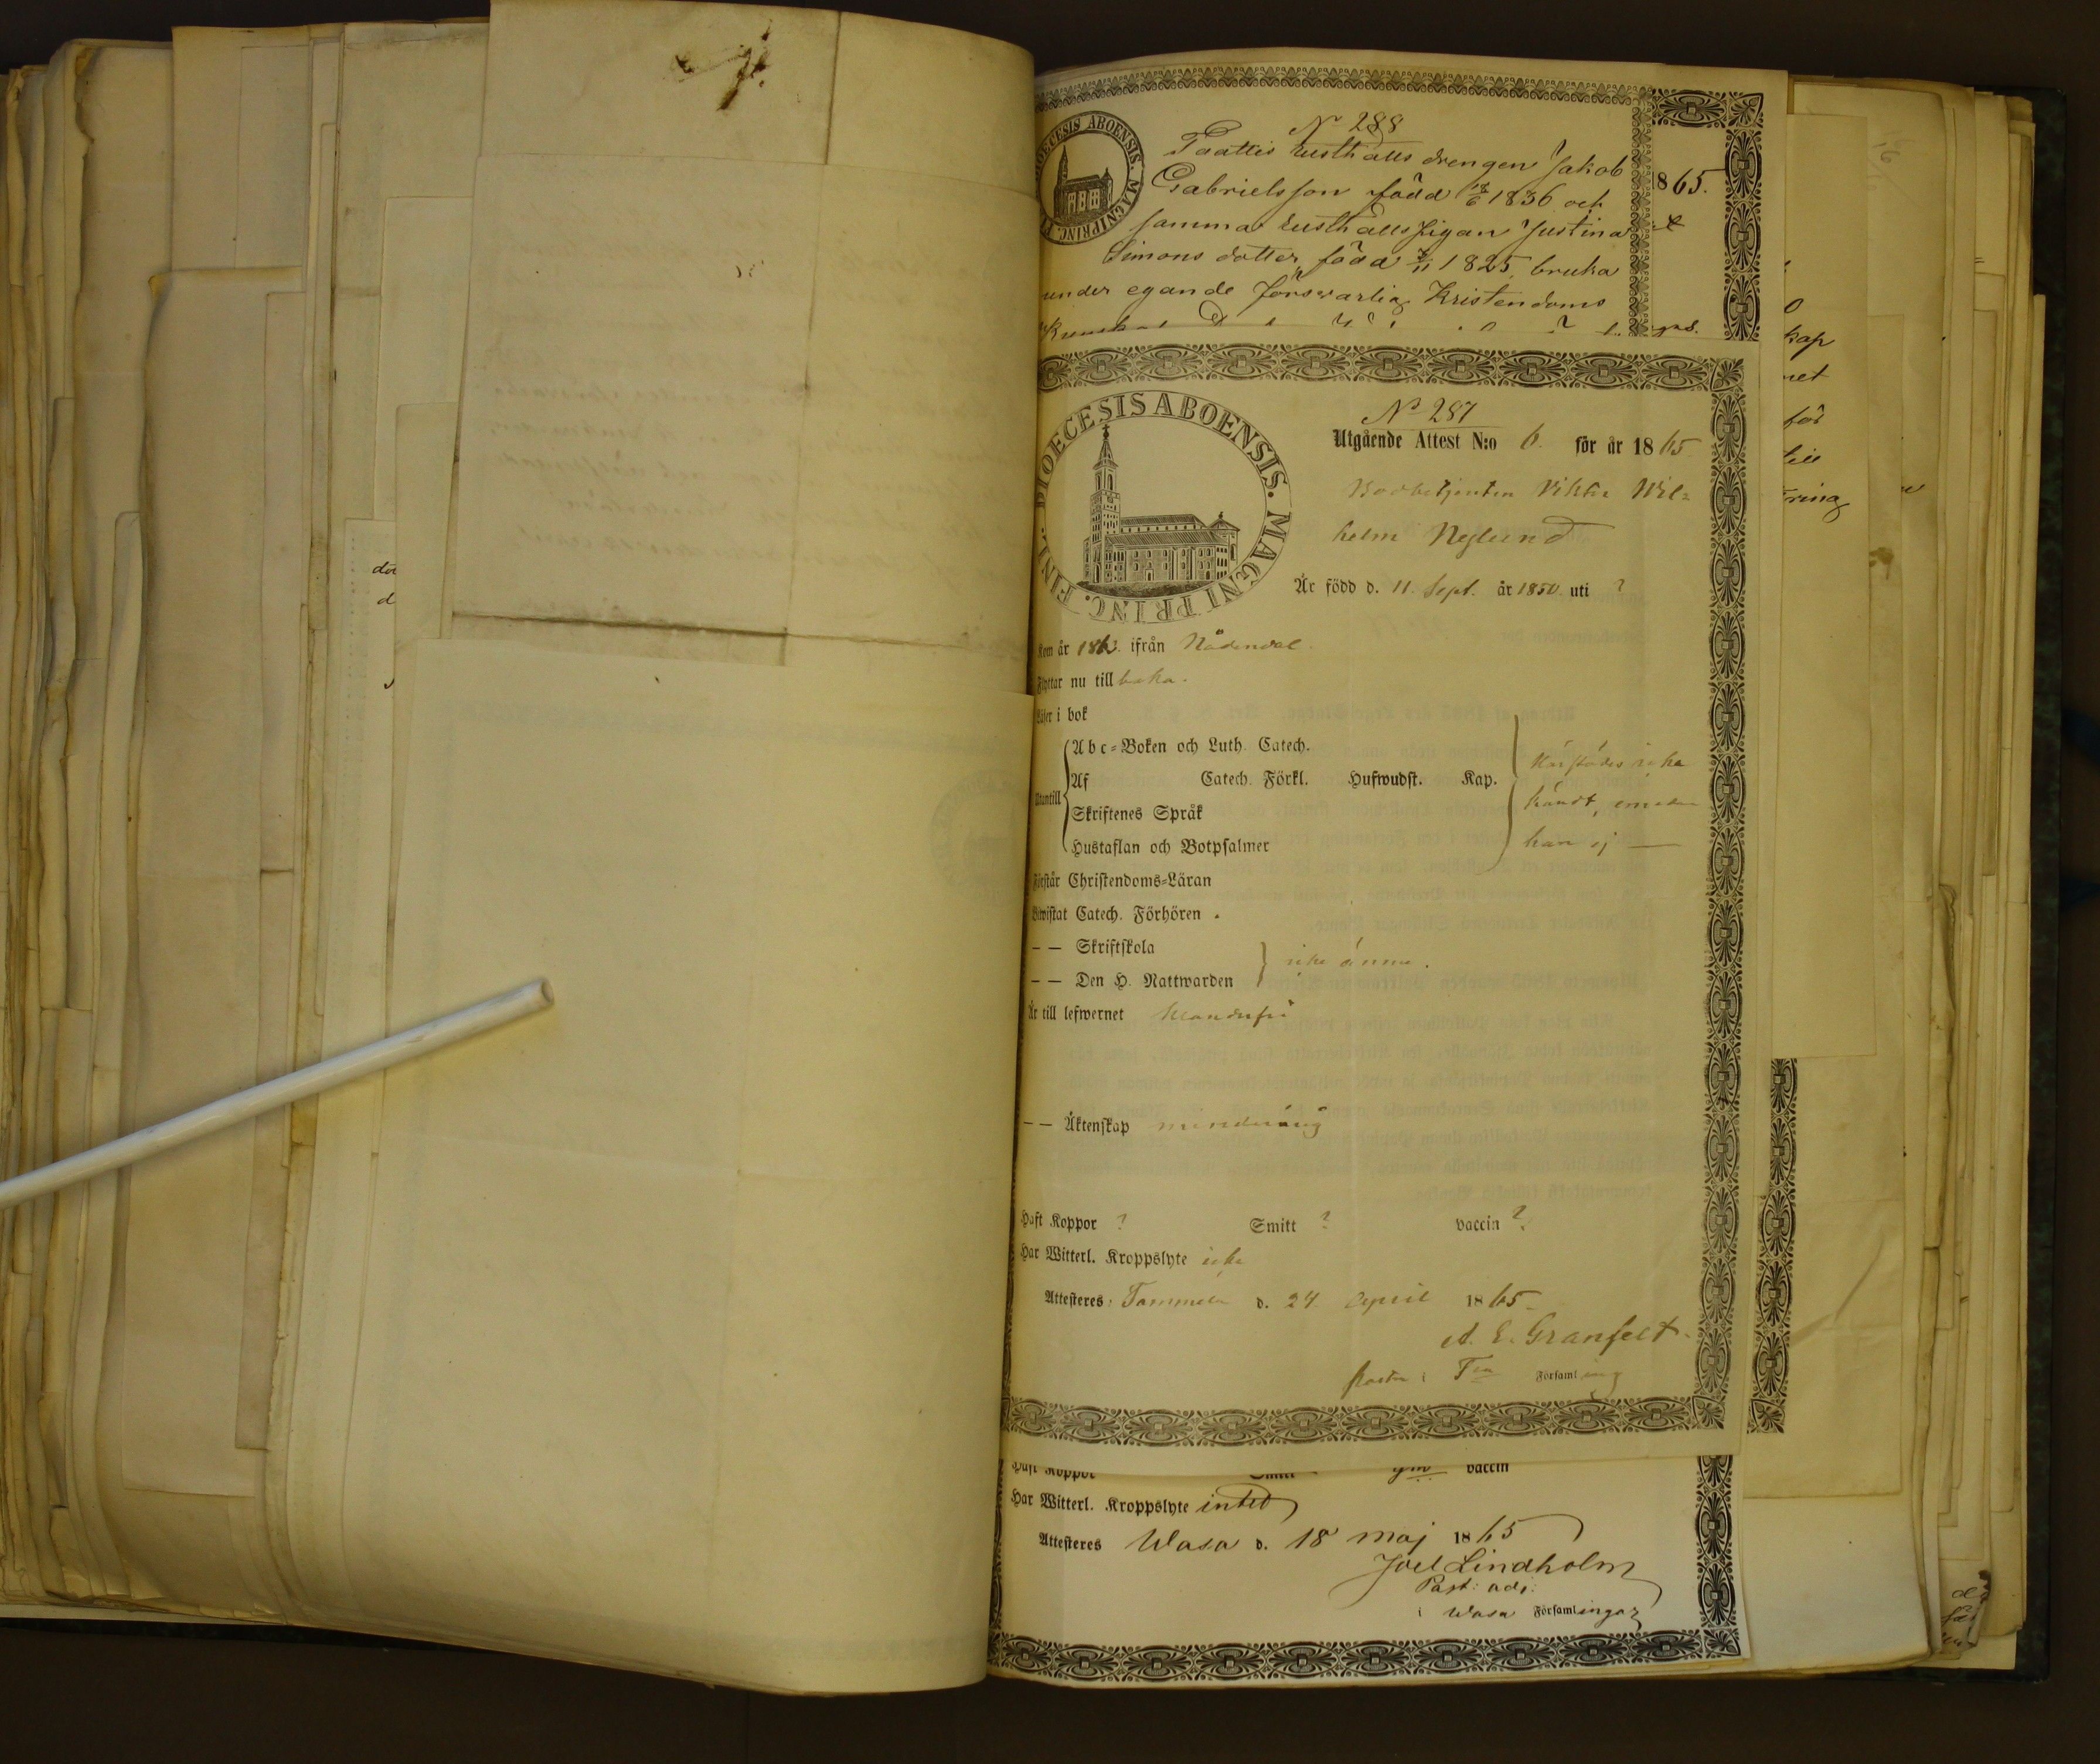 DIOECESIS ABOENSIS. MAGNI PRINC. F
No 288
Paattis rusthålls drengen Jakob
Gabrielsson född 18/6 1836 och
samma rusthålls pigan Justina
Simons dotter, född 1825, bruka
under egande försvarlig Kristendoms
1865.
DIOECESIS ABOENSIS. MAGNI PRINC. FINL.
No 287
Utgående Attest N:o 6. för år 1865
Bodbetjenten Viktor Wil=
helm Neglund
Är född d. 11. Sept. år 1850. uti ?
Kom år 1863. ifrån Nådendal.
Flyttar nu tillbaka.
Läser i bok
Utantill
Abc=Boken och Luth. Catech.
Af Catech. Förkl. Hufwudst. Kap.
Skriftenes Språk
Hustaflan och Botpsalmer
Härstädes icke
kändt, emedan
han ej —
Förstår Christendoms=Läran
Biwistat Catech. Förhören .
— — Skriftskola
— — Den H. Nattwarden
icke ännu.
Är till lefwernet klanderfri
— — Äktenskap minderårig
Haft Koppor ? Smitt ? vaccin ?
Har Witterl. Kroppslyte icke
Attesteres: Tammela d. 24. April 1865.
A. E. Granfelt.
Pastor i Tla Församling
Haft Koppor Smitt vaccin
Har Witterl. Kroppslyte intet
Attesteres Wasa d. 18 maj 1865
Joel Lindholm
Past: adj:
i Wasa Församlingar
kap
net
för
till
ring